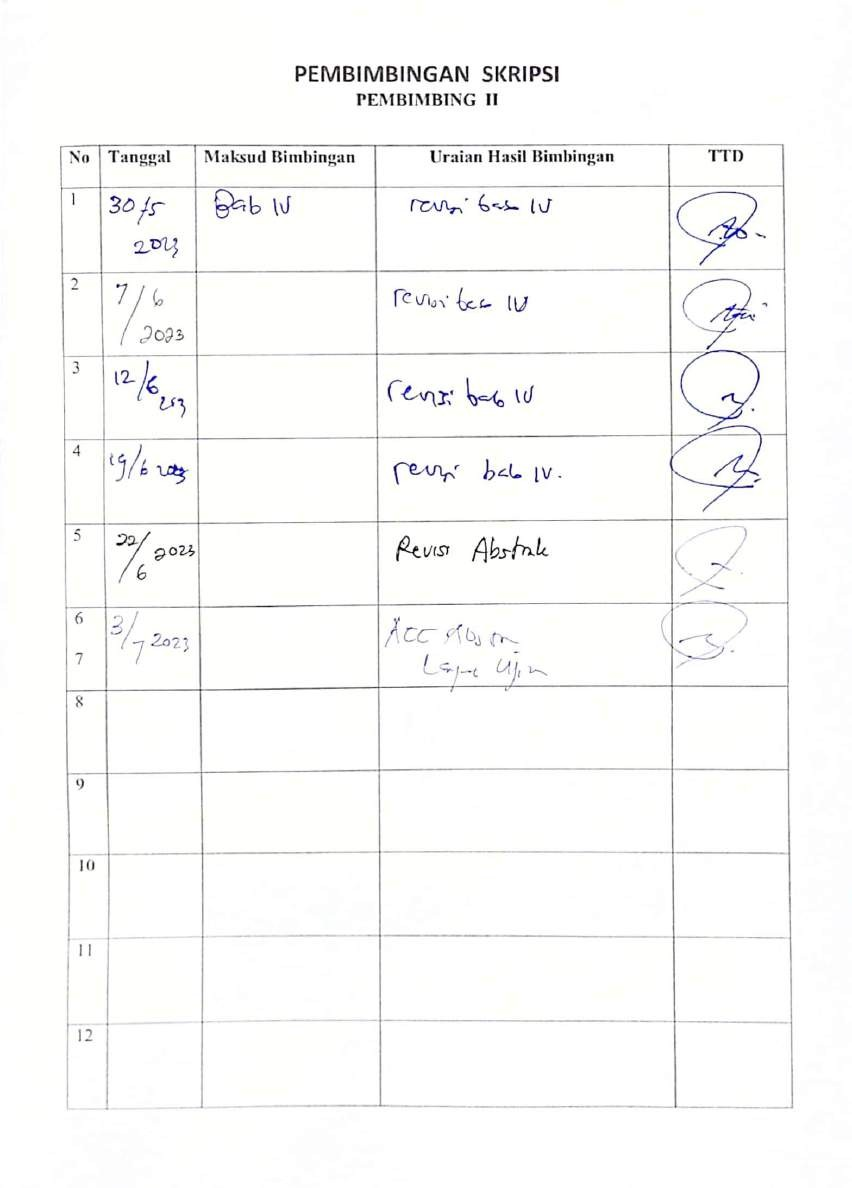 PEMBIMBINGAN SKRIPSI
PEMBIMBING II
No Tanggal Maksud Bimbingan Uraian Hasil Bimbingan TTD
1 30/5 Bab IV revisi bab IV
2023
2 7/6 revisi bab IV
2023
3 12/6 revisi bab IV
2023
4 19/6 2023 revisi bab IV.
5 22/6 2023 Revisi Abstrak
6 3/7 2023 ACC
7
8
9
10
11
12